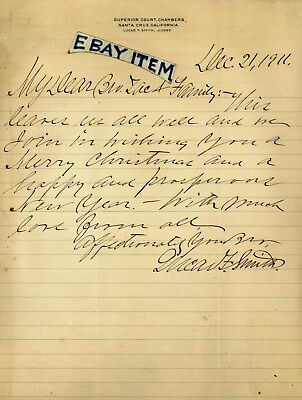 SUPERIOR COURT, CHAMBERS,
SANTA CRUZ, CALIFORNIA
LUCAS F. SMITH, JUDGE
EBAY ITEM
Dec. 21, 1911.
My Dear Bro Zac & Family:- This
leaves us all well and we
Join in wishing you a
Merry Christmas and a
happy and prosperous
New Year. - With much
love from all.
Affectionately Your Bro.
Lucas F. Smith.